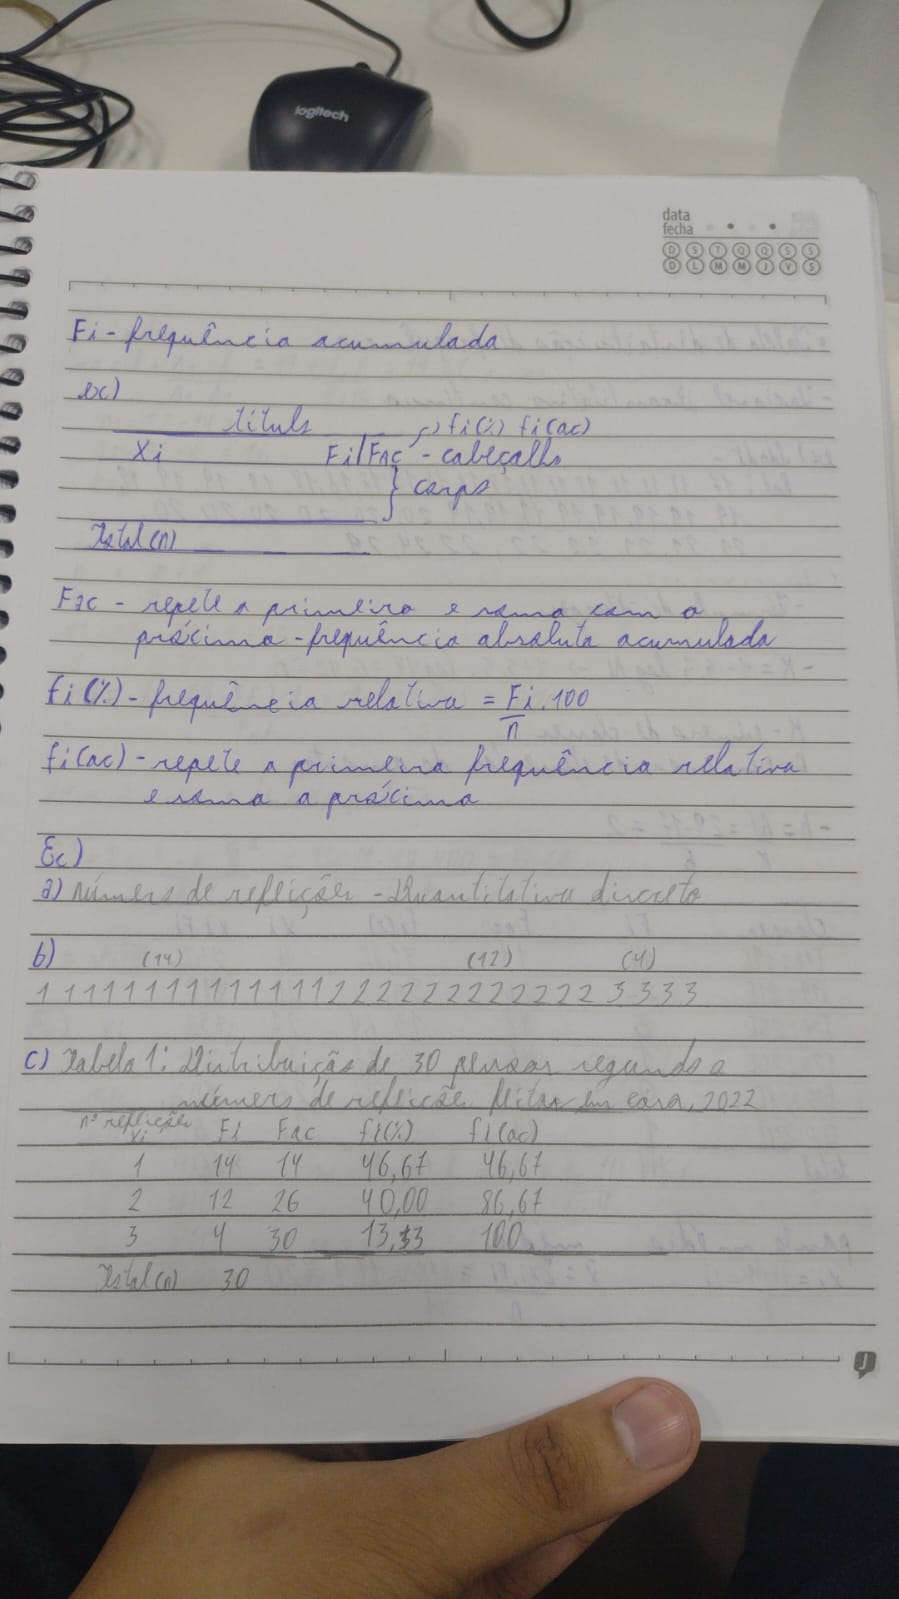 logitech
data
fecha
D S T Q Q S S
D L M M J V S
Fi - frequência acumulada
ex)
título fi(%) fi(ac)
Xi Fi/FAC - cabeçalho
} corpo
Total (n)
Fac - repete a primeira e soma com a
próxima - frequência absoluta acumulada
fi(%) - frequência relativa = Fi . 100
n
fi(ac) - repete a primeira frequência relativa
e soma a próxima
Ec)
a) número de refeições - Quantitativa discreta
b) (14) (12) (4)
1 1 1 1 1 1 1 1 1 1 1 1 1 1 2 2 2 2 2 2 2 2 2 2 2 2 3 3 3 3
c) Tabela 1: Distribuição de 30 pessoas segundo o
número de refeição feitas em casa, 2022
nº refeições
Xi Fi Fac fi(%) fi(ac)
1 14 14 46,67 46,67
2 12 26 40,00 86,67
3 4 30 13,33 100
Total (n) 30
J